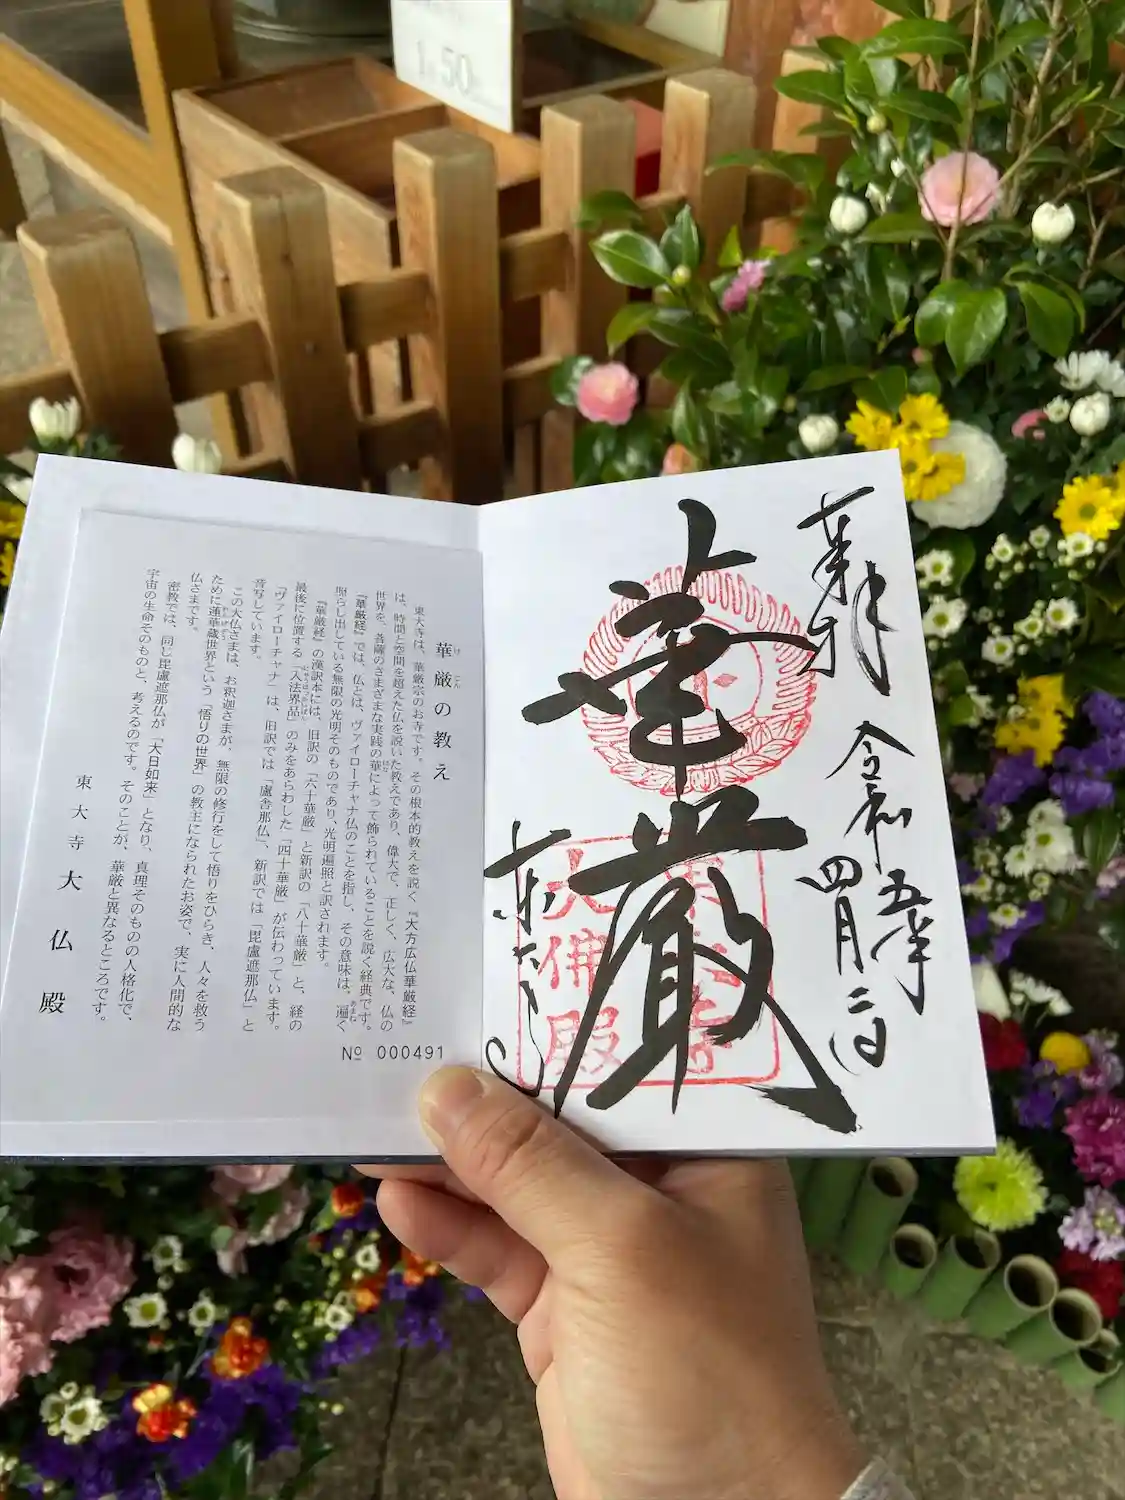 150
奉拝
令和五年
四月二日
華厳
東大寺
東大寺
大佛殿
華厳の教え
東大寺は、華厳宗のお寺です。その根本的教えを説く『大方広仏華厳経』
は、時間と空間を超えた仏を説いた教えであり、偉大で、正しく、広大な、仏の
世界を、菩薩のさまざまな実践の華によって飾られていることを説く経典です。
『華厳経』では、仏とは、ヴァイローチャナ仏のことを指し、その意味は、遍く
照らし出している無限の光明そのものであり、光明遍照と訳されます。
『華厳経』の漢訳本には、旧訳の「六十華厳」と新訳の「八十華厳」と、経の
最後に位置する「入法界品」のみをあらわした「四十華厳」が伝わっています。
「ヴァイローチャナ」は、旧訳では「盧舎那仏」、新訳では「毘盧遮那仏」と
音写しています。
この大仏さまは、お釈迦さまが、無限の修行をして悟りをひらき、人々を救う
ために蓮華蔵世界という「悟りの世界」の教主になられたお姿で、実に人間的な
仏さまです。
密教では、同じ毘盧遮那仏が「大日如来」となり、真理そのものの人格化で、
宇宙の生命そのものと、考えるのです。そのことが、華厳と異なるところです。
東大寺大仏殿
№ 000491